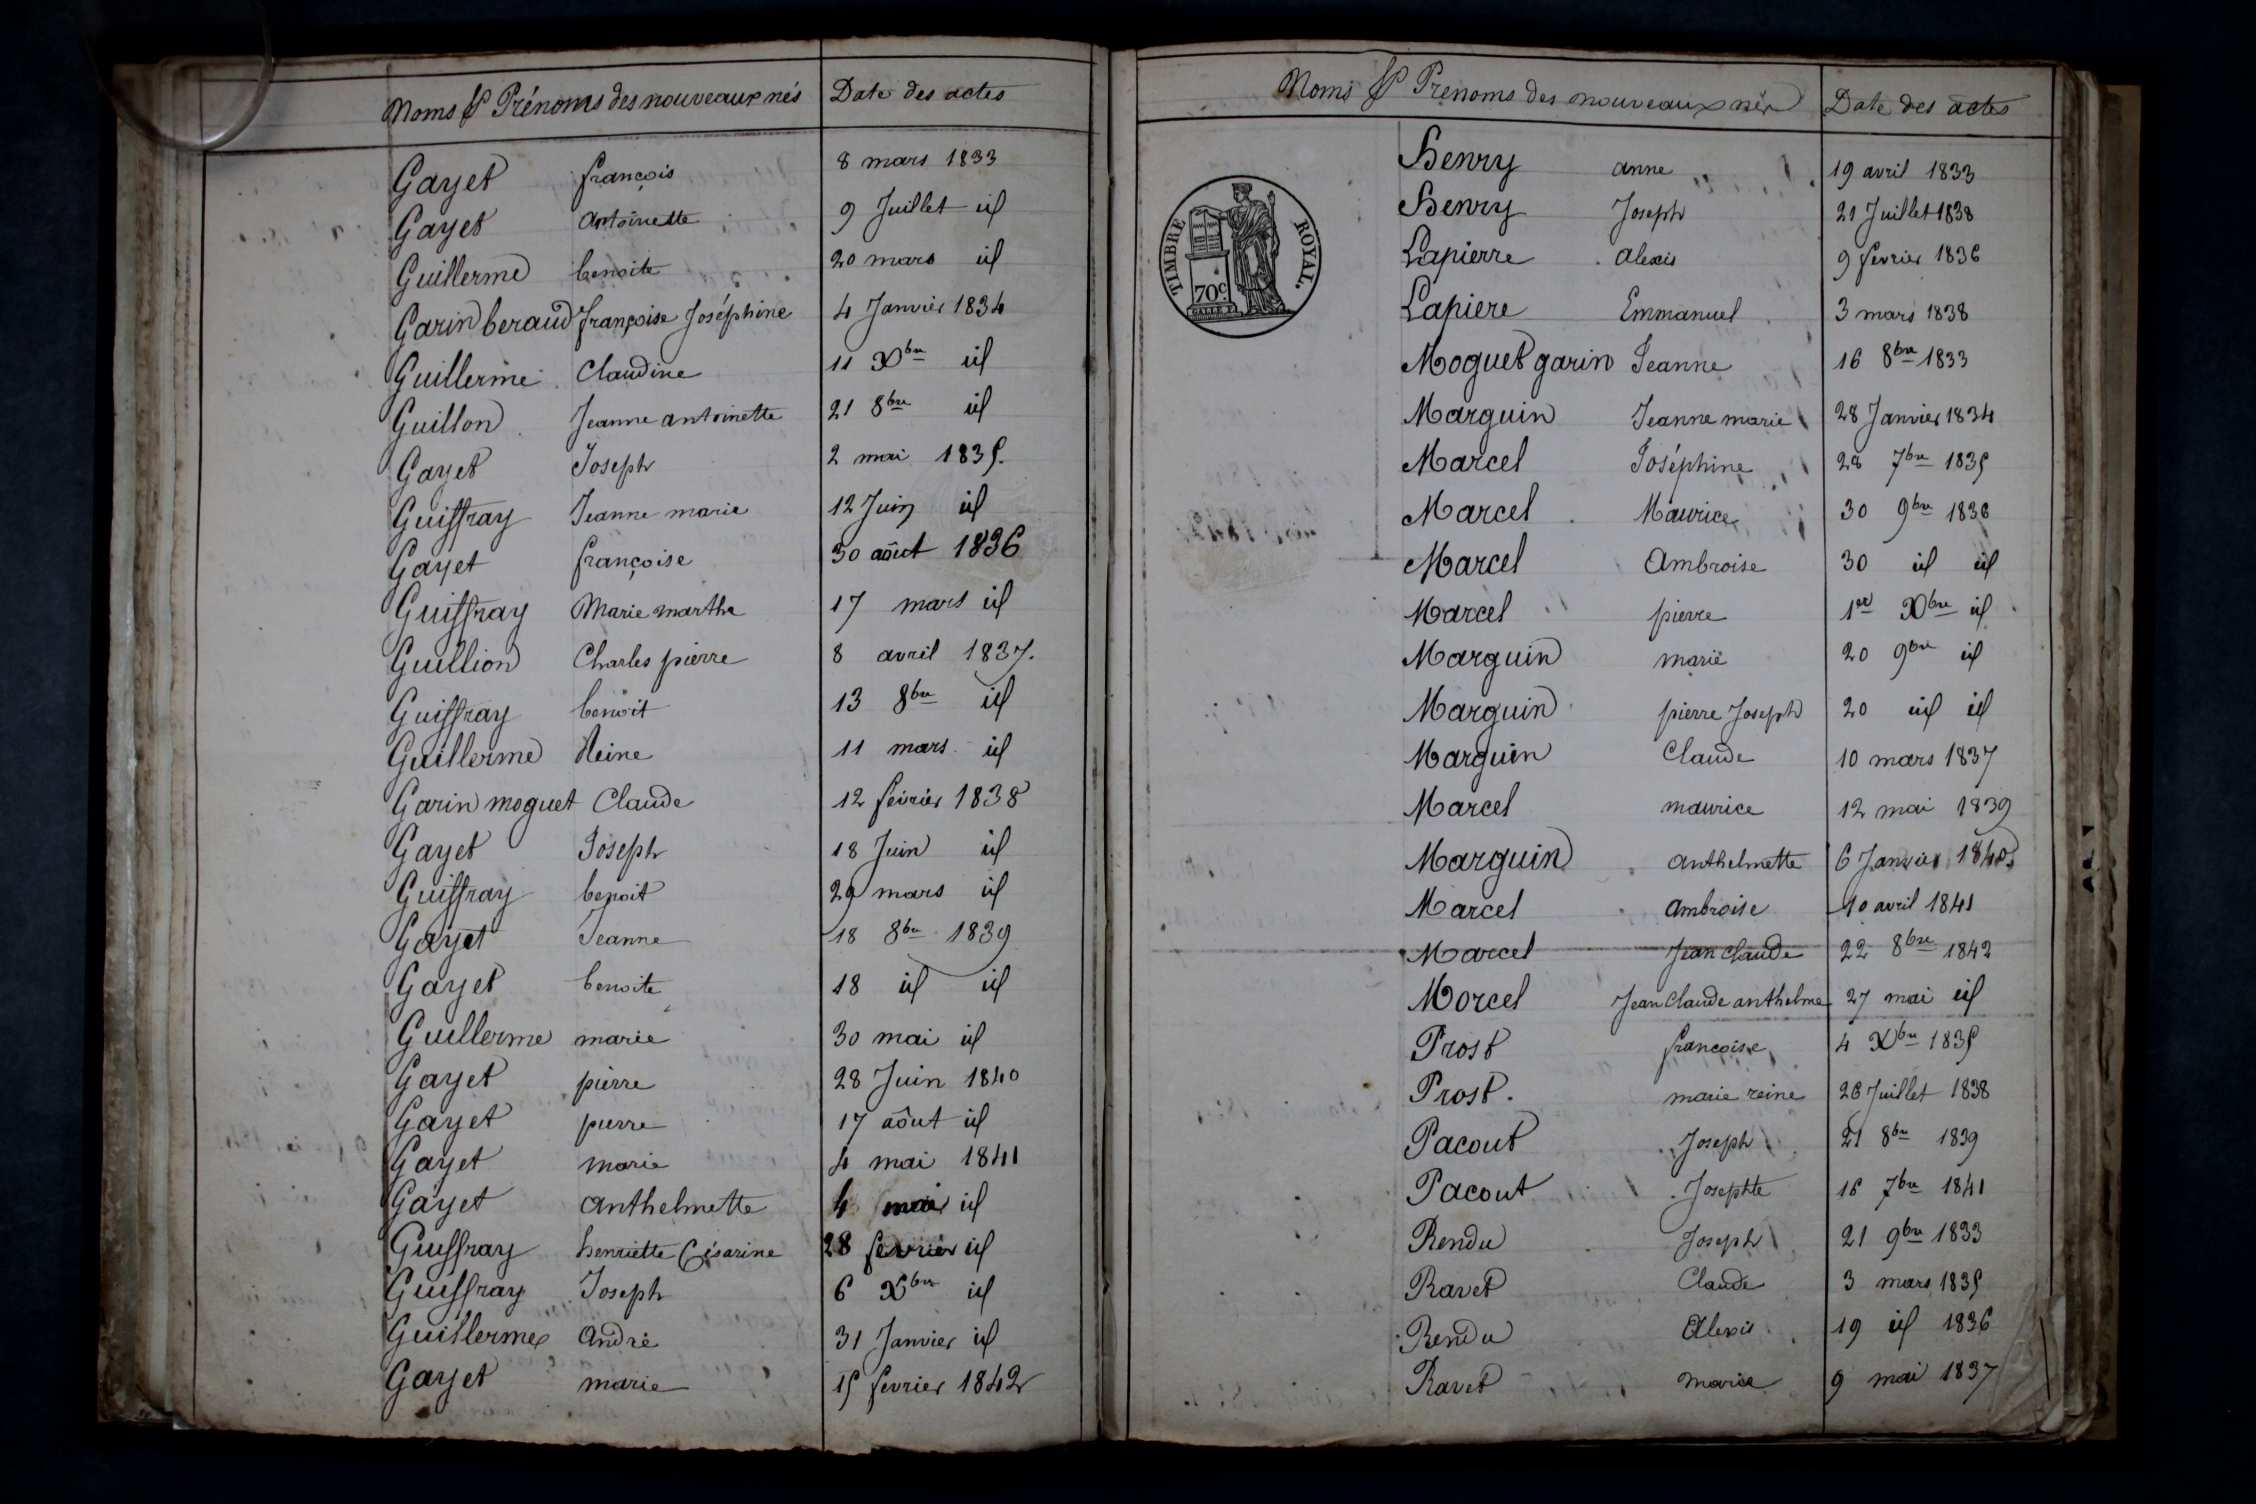 Noms & Prénoms des nouveaux nés Date des actes
Gayet françois 8 mars 1833
Gayet antoinette 9 Juillet id
Guillerme benoite 20 mars id
Garin beraud françoise Joséphine 4 Janvier 1834
Guillerme Claudine 11 Xbre id
Guillon Jeanne antoinette 21 8bre id
Gayet Joseph 2 mai 1835.
Guiffray Jeanne marie 12 Juin id
Gayet françoise 30 aôut 1836
Guiffray Marie marthe 17 mars id
Guillion Charles pierre 8 avril 1837.
Guiffray benoit 13 8bre id
Guillerme Reine 11 mars id
Garin moguet Claude 12 février 1838
Gayet Joseph 18 Juin id
Guiffray benoit 29 mars id
Gayet Jeanne 18 8bre 1839
Gayet benoite 18 id id
Guillerme marie 30 mai id
Gayet pierre 28 Juin 1840
Gayet pierre 17 aôut id
Gayet marie 4 mai 1841
Gayet anthelmette 4 mai id
Guiffray henriette Césarine 28 fevrier id
Guiffray Joseph 6 Xbre id
Guillerme andré 31 Janvier id
Gayet marie 15 fevrier 1842
Noms & Prenoms des nouveaux nés Date des actes
TIMBRE ROYAL.
70c.
Henry anne 19 avril 1833
Henry Joseph 21 Juillet 1838
Lapierre alexis 9 fevrier 1836
Lapiere Emmanuel 3 mars 1838
Moguet garin Jeanne 16 8bre 1833
Marguin Jeanne marie 28 Janvier 1834
Marcel Joséphine 28 7bre 1835
Marcel Maurice 30 9bre 1836
Marcel Ambroise 30 id id
Marcel pierre 1er Xbre id
Marguin marie 20 9bre id
Marguin pierre Joseph 20 id id
Marguin Claude 10 mars 1837
Marcel maurice 12 mai 1839
Marguin anthelmette 6 Janvier 1840
Marcel ambroise 10 avril 1841
Marcel Jean Claude 22 8bre 1842
Morcel Jean Claude anthelme 27 mai id
Prost francoise 4 Xbre 1835
Prost. marie reine 26 Juillet 1838
Pacout Joseph 21 8bre 1839
Pacout Josephte 16 7bre 1841
Rendu Joseph 21 9bre 1833
Ravet Claude 3 mars 1835
Rendu Alexis 19 id 1836
Ravet marie 9 mai 1837